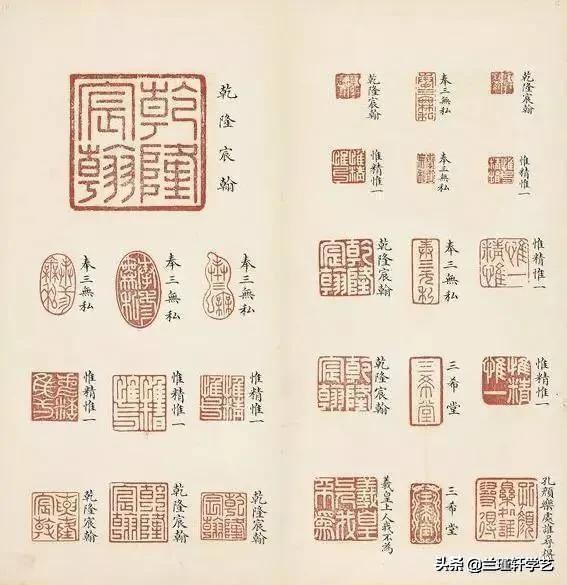 乾隆宸翰
奉三無私
乾隆宸翰
惟精惟一
奉三無私
惟精惟一
惟精惟一
奉三無私
乾隆宸翰
惟精惟一
三希堂
乾隆宸翰
孔顏樂處誰尋得
三希堂
羲皇上人我不為
乾隆宸翰
乾隆宸翰
奉三無私
奉三無私
奉三無私
惟精惟一
惟精惟一
惟精惟一
乾隆宸翰
乾隆宸翰
乾隆宸翰
头条 @兰瑾轩学艺